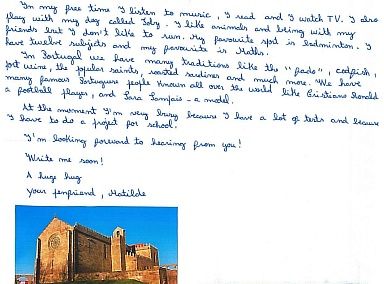 In my free time I listen to music, I read and I watch TV. I also
play with my dog called Toby. I like animals and being with my
friends but I don't like to run. My favourite spot is badminton. I
have twelve subjects and my favourite is Maths.
In Portugal we have many traditions like the "fado", codfish,
port wine, the popular saints, roasted sardines and much more. We have
many famous Portuguese people known all over the world like Cristiano Ronaldo
a football player, and Sara Sampaio - a model.
At the moment I'm very busy because I have a lot of tests and because
I have to do a project for school.
I'm looking forward to hearing from you!
Write me soon!
A huge hug
Your penfriend, Matilde